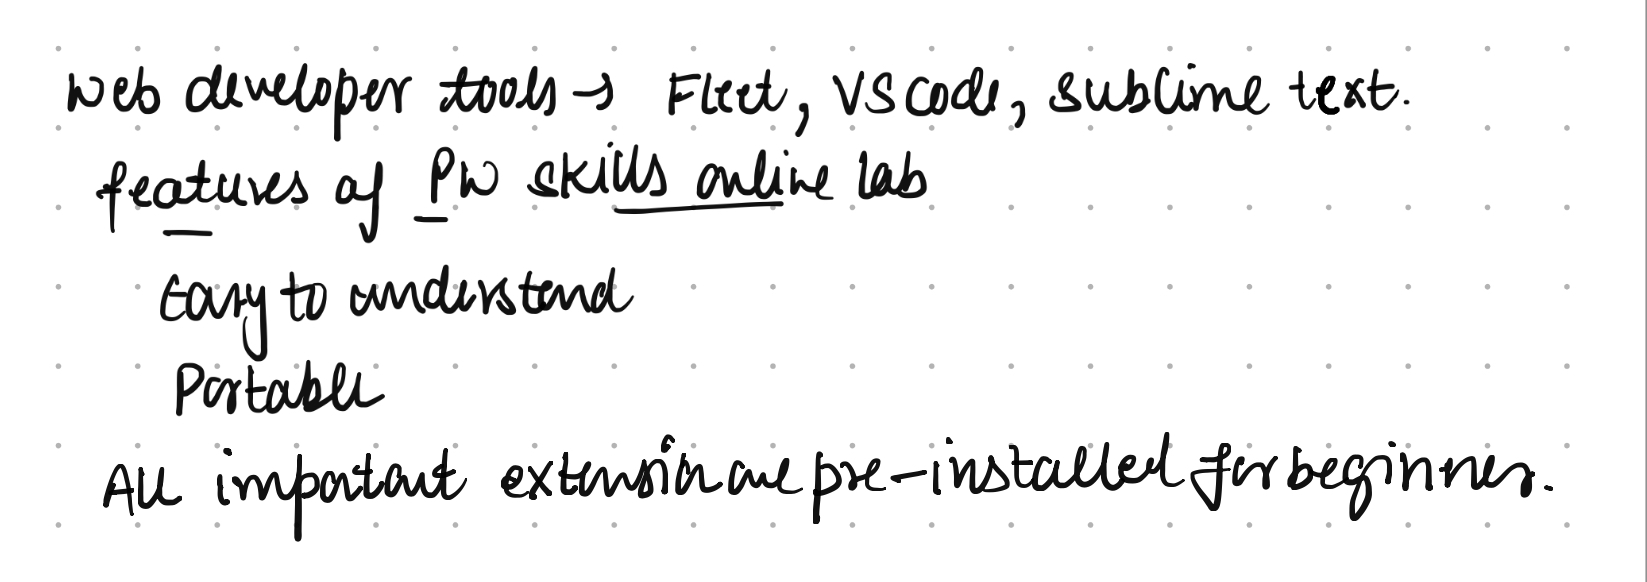 Web developer tools → Fleet, VS Code, sublime text.
features of PW skills online lab
Easy to understand
Portable
All important extension are pre-installed for beginner.